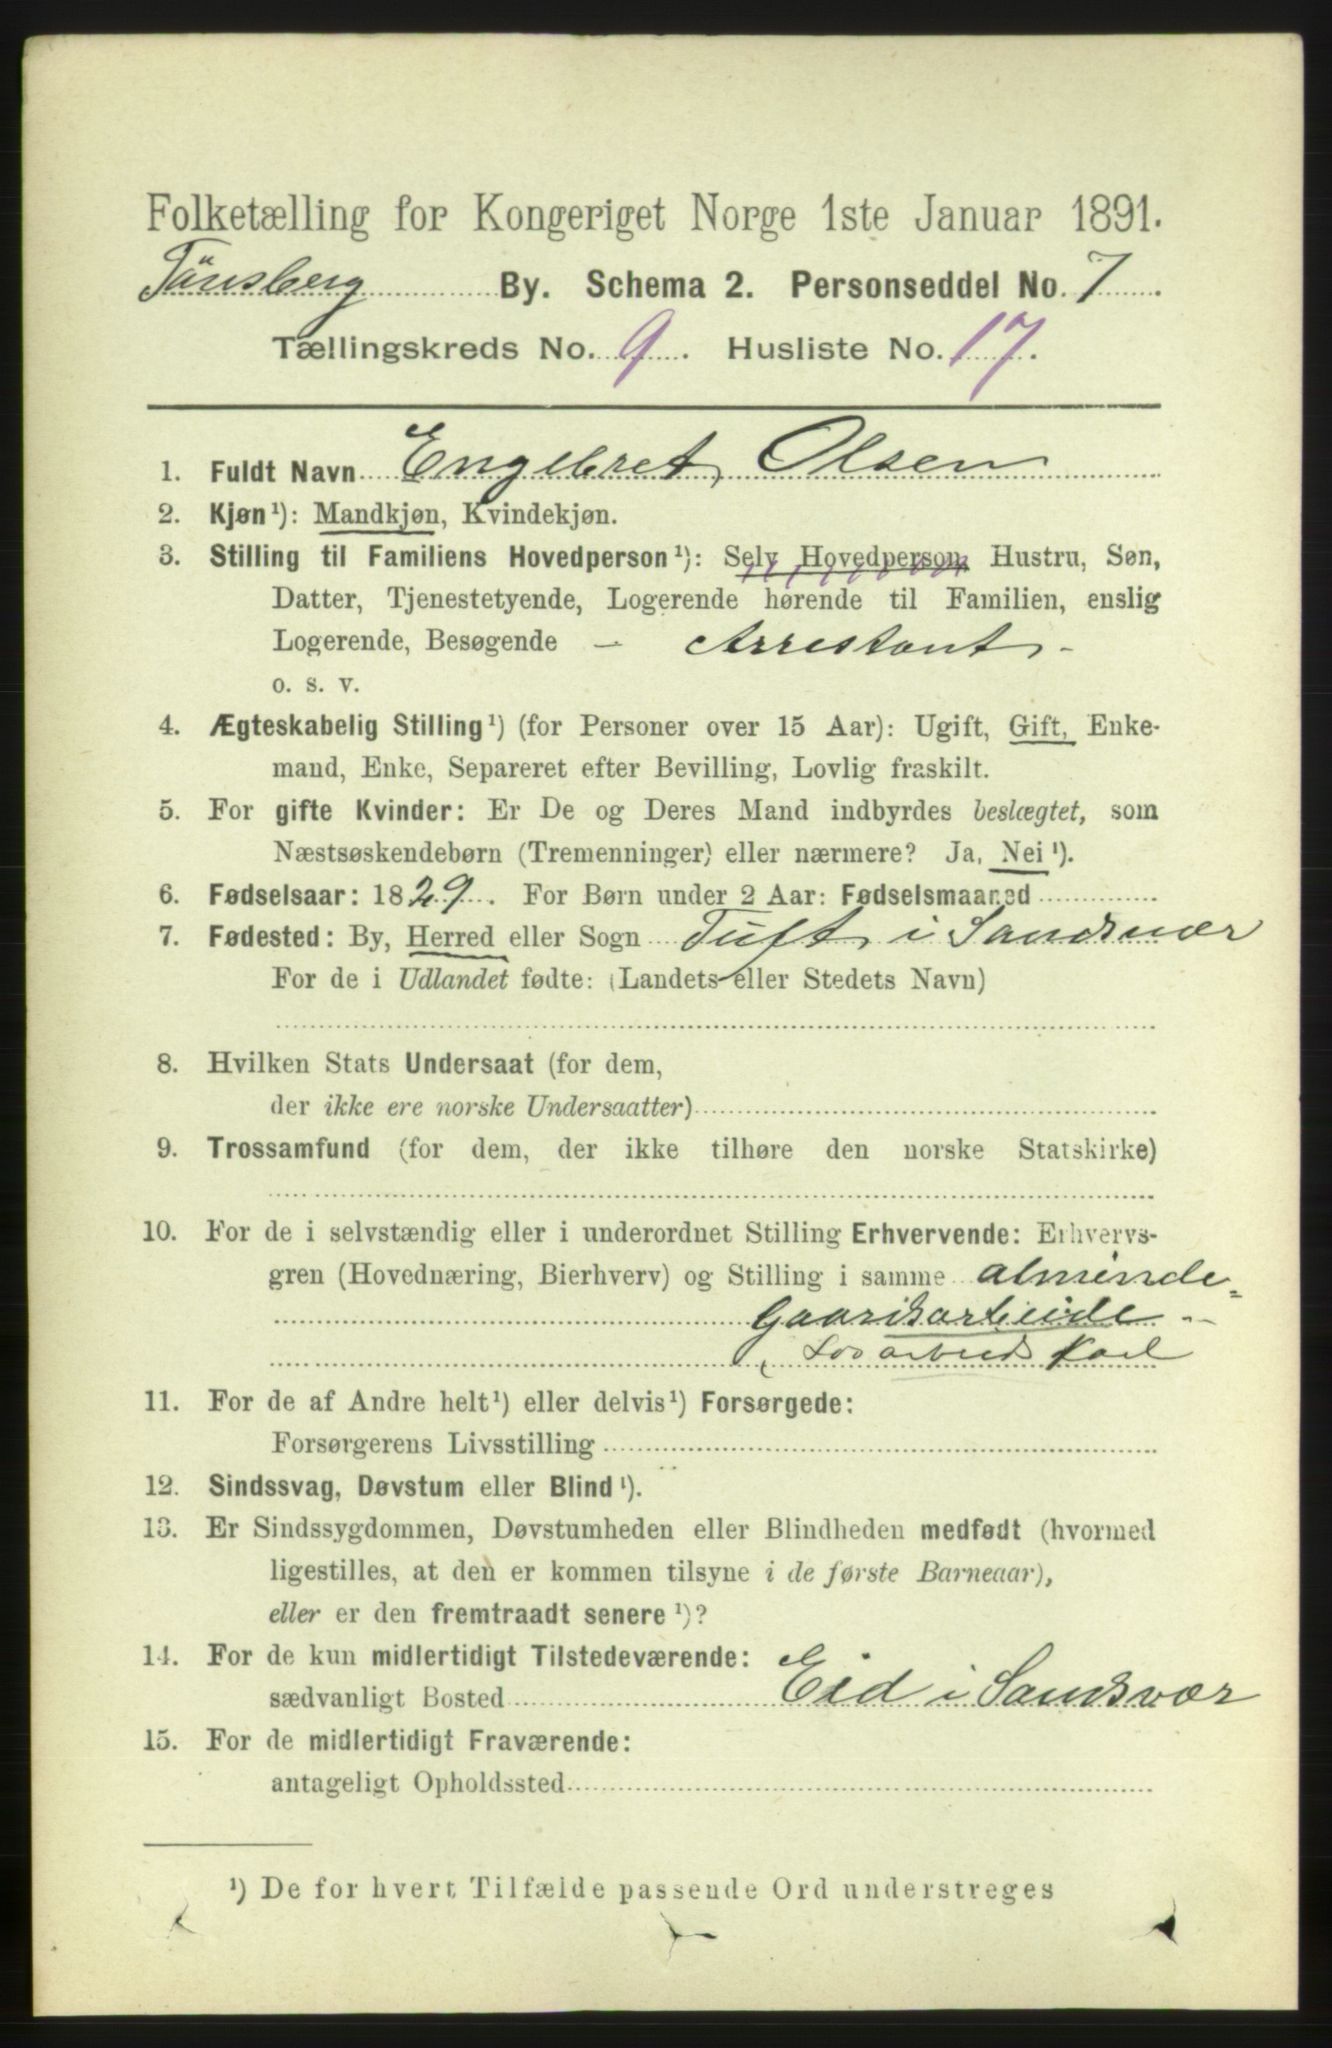 Folketælling for Kongeriget Norge 1ste Januar 1891.
Tönsberg By. Schema 2. Personseddel No. 7.
Tællingskreds No. 9. Husliste No. 17.
1. Fuldt Navn Engebret Olsen
2. Kjøn¹): Mandkjøn, Kvindekjøn.
3. Stilling til Familiens Hovedperson¹): Selv Hovedperson, Hustru, Søn,
Datter, Tjenestetyende, Logerende hørende til Familien, enslig
Logerende, Besøgende – Arrestant -
o. s. v.
4. Ægteskabelig Stilling¹) (for Personer over 15 Aar): Ugift, Gift, Enke-
mand, Enke, Separeret efter Bevilling, Lovlig fraskilt.
5. For gifte Kvinder: Er De og Deres Mand indbyrdes beslægtet, som
Næstsøskendebørn (Tremenninger) eller nærmere? Ja, Nei¹).
6. Fødselsaar: 1829. For Børn under 2 Aar: Fødselsmaaned
7. Fødested: By, Herred eller Sogn Tuft i Sandsvær
For de i Udlandet fødte: (Landets eller Stedets Navn)
8. Hvilken Stats Undersaat (for dem,
der ikke ere norske Undersaatter)
9. Trossamfund (for dem, der ikke tilhøre den norske Statskirke)
10. For de i selvstændig eller i underordnet Stilling Erhvervende: Erhvervs-
gren (Hovednæring, Bierhverv) og Stilling i samme alminde=
Gaardsarbeide -
Karl
11. For de af Andre helt¹) eller delvis¹) Forsørgede:
Forsørgerens Livsstilling
12. Sindssvag, Døvstum eller Blind¹).
13. Er Sindssygdommen, Døvstumheden eller Blindheden medfødt (hvormed
ligestilles, at den er kommen tilsyne i de første Barneaar),
eller er den fremtraadt senere¹)?
14. For de kun midlertidigt Tilstedeværende:
sædvanligt Bosted Eid i Sandsvær
15. For de midlertidigt Fraværende:
antageligt Opholdssted
¹) De for hvert Tilfælde passende Ord understreges